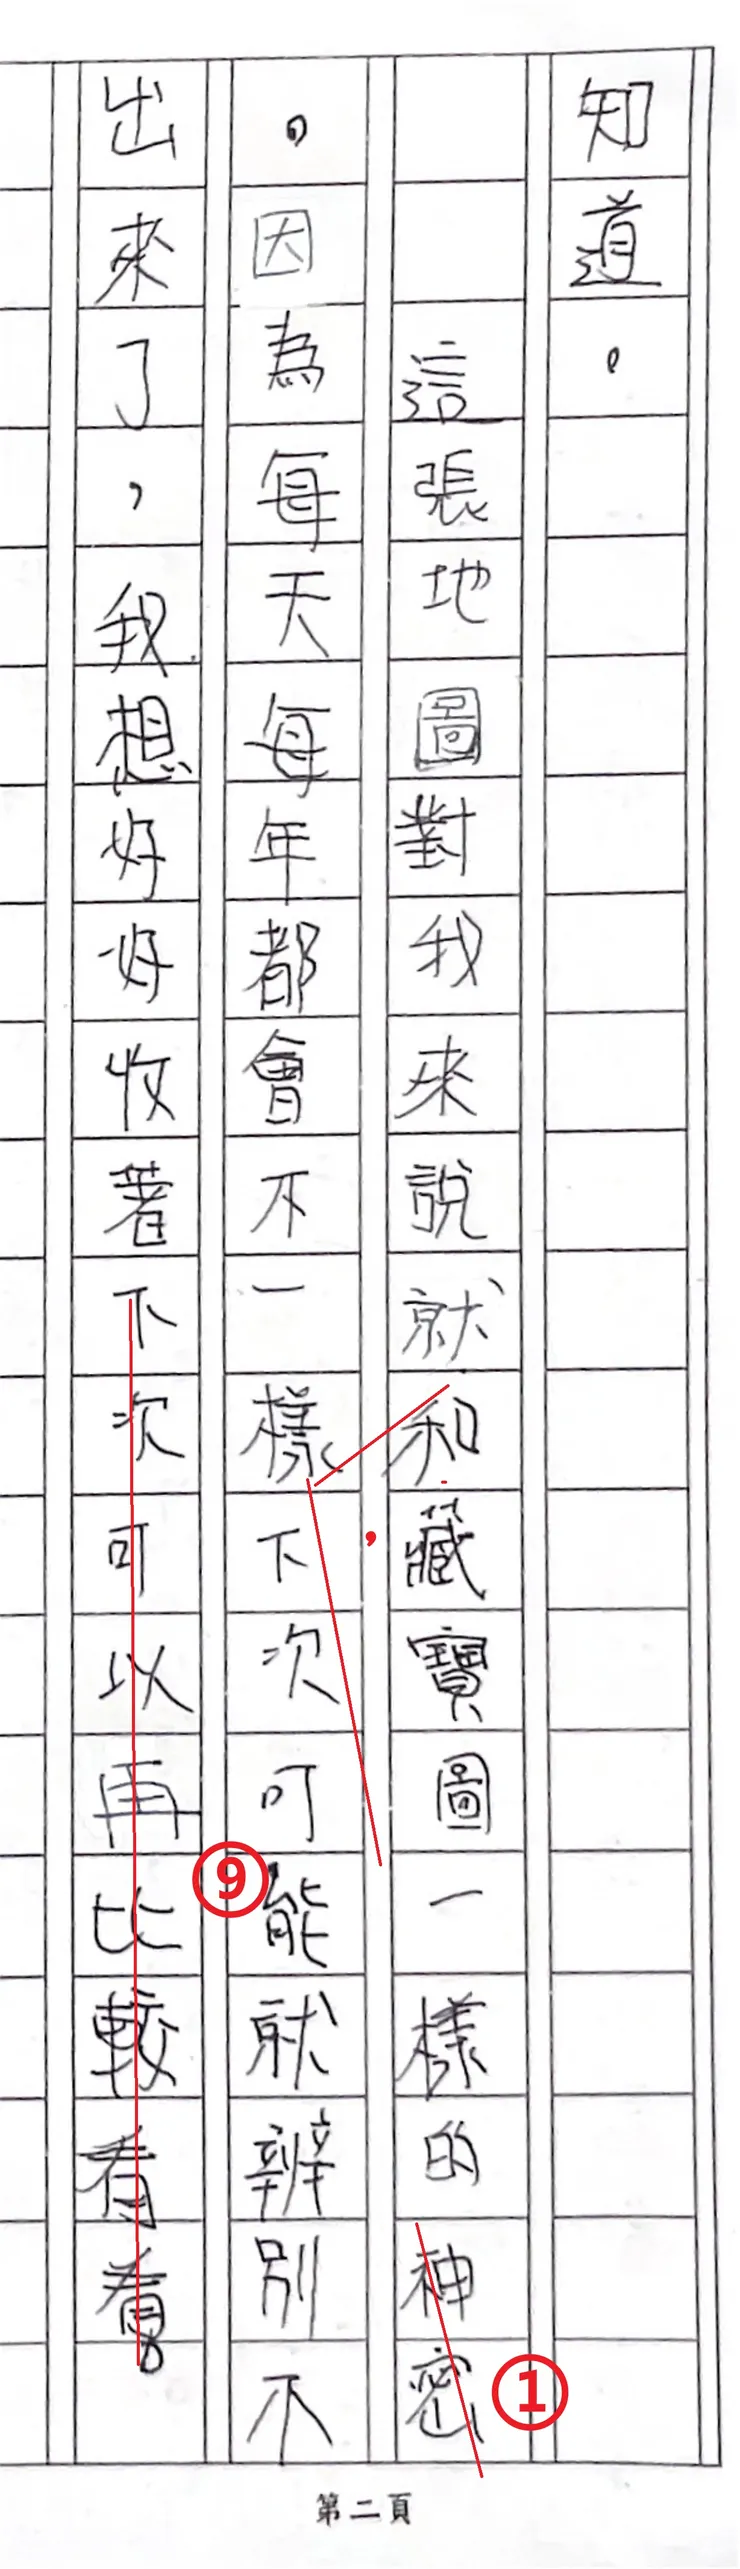 知道。
這張地圖對我來說就和藏寶圖一樣的神密
，因為每天每年都會不一樣下次可能就辨別不
出來了，我想好好收著下次可以再比較看看。
，
⑨
①
第二頁